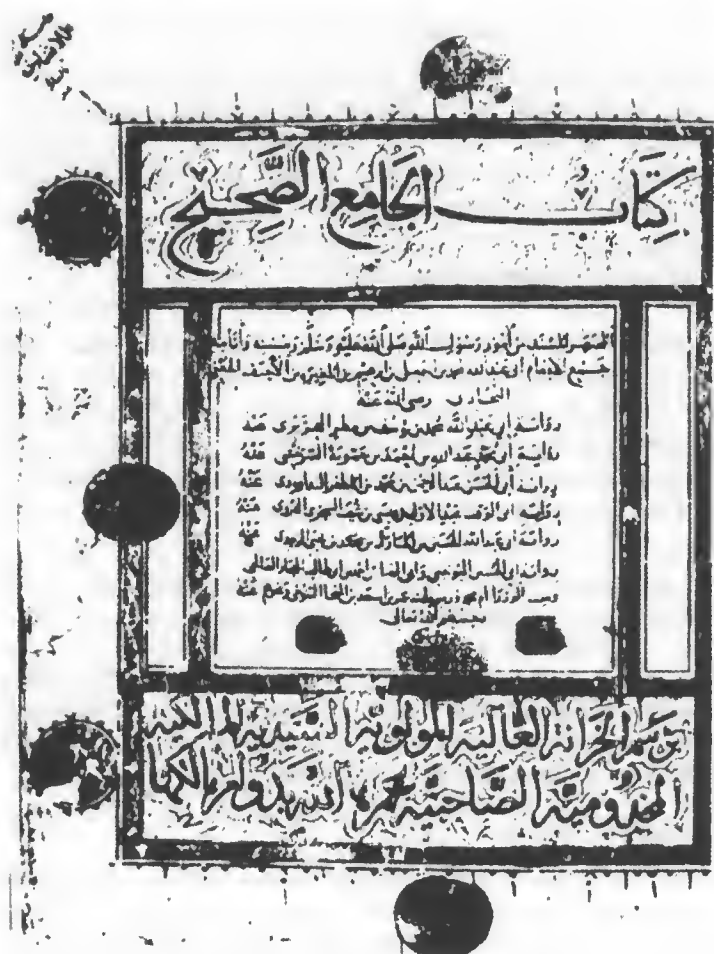 كِتَابُ الجَامِعِ الصَّحِيحِ
المختصر المسند من أمور رسول الله صلى الله عليه وسلم وسننه وأيامه
جمع الإمام أبي عبد الله محمد بن إسمعيل بن إبرهيم بن المغيرة بن
البخاري رضي الله عنه
رواية أبي عبد الله محمد بن يوسف بن مطر الفربري عنه
رواية أبي محمد عبد الله بن أحمد بن حمويه السرخسي عنه
رواية أبي الحسن عبد الرحمن بن محمد بن المظفر الداودي عنه
رواية أبي الوقت عبد الأول بن عيسى بن شعيب السجزي الهروي عنه
رواية أبي عبد الله الحسين بن المبارك بن محمد بن يحيى الزبيدي عنه
رواية أبي الحسن وأبي العباس أحمد بن أبي طالب
وست الوزراء أم محمد بن أسعد بن المنجا عنه
الله تعالى
برسم الخزانة العالية المولوية السيدية المالكية
المخدومية الصاحبية عمرها الله بدوام